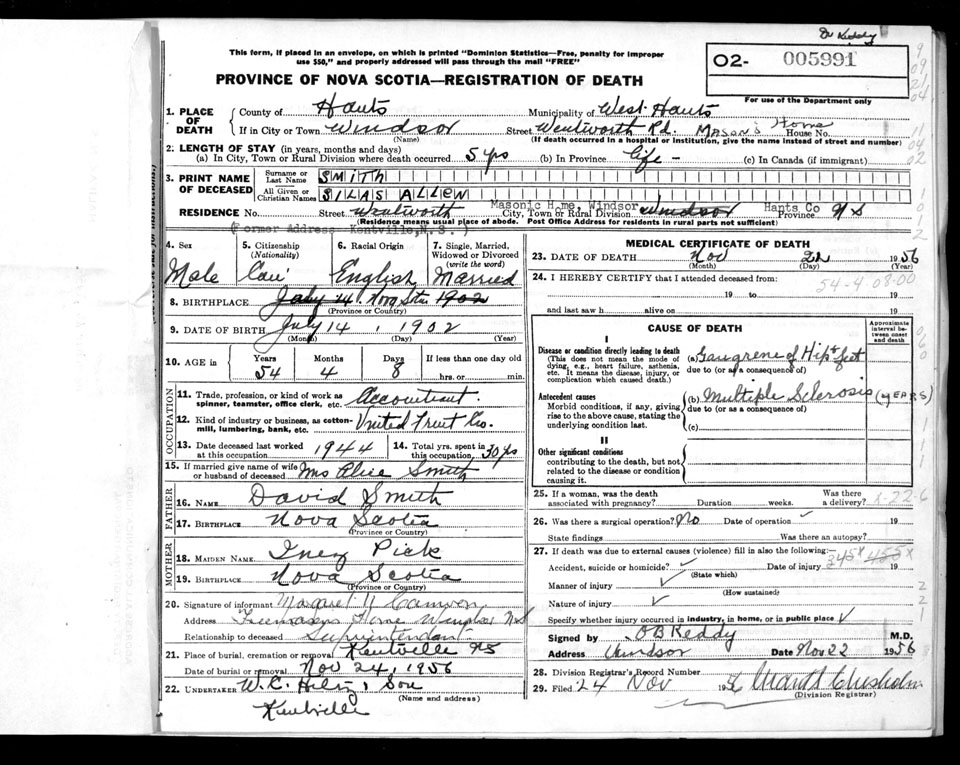 Dr Reddy
This form, if placed in an envelope, on which is printed "Dominion Statistics—Free, penalty for improper
use $50," and properly addressed will pass through the mail "FREE"
PROVINCE OF NOVA SCOTIA—REGISTRATION OF DEATH
02- 005991
For use of the Department only
1. PLACE OF DEATH
County of Hants Municipality of West Hants
If in City or Town Windsor Street Wentworth Rd. Mason's Home House No.
(Name) (If death occurred in a hospital or institution, give the name instead of street and number)
2. LENGTH OF STAY (in years, months and days)
(a) In City, Town or Rural Division where death occurred 5 yrs (b) In Province life - (c) In Canada (if immigrant)
3. PRINT NAME OF DECEASED
Surname or Last Name SMITH
All Given or Christian Names SILAS ALLEN
Masonic H.me, Windsor Hants Co
RESIDENCE No. Street Wentworth City, Town or Rural Division Windsor Province N S
(Residence means usual place of abode. Post Office Address in rural parts not sufficient)
(Former Address- Kentville, N. S. )
4. Sex Male
5. Citizenship (Nationality) Can
6. Racial Origin English
7. Single, Married, Widowed or Divorced (write the word) Married
8. BIRTHPLACE July 14 Nova Scotia 1902
(Province or Country)
9. DATE OF BIRTH July 14, 1902
(Month) (Day) (Year)
10. AGE in Years 54 Months 4 Days 8 If less than one day old hrs. or min.
OCCUPATION
11. Trade, profession, or kind of work as spinner, teamster, office clerk, etc. Accountant.
12. Kind of industry or business, as cotton-mill, lumbering, bank, etc. United Fruit Co.
13. Date deceased last worked at this occupation 1944
14. Total yrs. spent in this occupation 30 yrs
15. If married give name of wife or husband of deceased Mrs Alice Smith
FATHER
16. NAME David Smith
17. BIRTHPLACE Nova Scotia
(Province or Country)
MOTHER
18. MAIDEN NAME Inez
19. BIRTHPLACE Nova Scotia
(Province or Country)
20. Signature of informant
Address Freemasons Home Windsor N S
Relationship to deceased Superintendant
21. Place of burial, cremation or removal Kentville NS
Date of burial or removal Nov 24, 1956
22. UNDERTAKER W. C. & Son
(Name and address)
Kentville
MEDICAL CERTIFICATE OF DEATH
23. DATE OF DEATH Nov 22 1956
(Month) (Day) (Year)
24. I HEREBY CERTIFY that I attended deceased from:
54-4-08-00
19 to 19
and last saw h alive on 19
CAUSE OF DEATH
Approximate interval between onset and death
I
Disease or condition directly leading to death
This does not mean the mode of dying, e.g., heart failure, asthenia, etc. It means the disease, injury, or complication which caused death.)
(a) Gangrene of Hip & feet
due to (or as a consequence of)
Antecedent causes
Morbid conditions, if any, giving rise to the above cause, stating the underlying condition last.
(b) Multiple Sclerosis (YEARS)
due to (or as a consequence of)
(c)
II
Other significant conditions
contributing to the death, but not related to the disease or condition causing it.
25. If a woman, was the death associated with pregnancy? Duration weeks. Was there a delivery?
26. Was there a surgical operation? No Date of operation 19
State findings Was there an autopsy?
27. If death was due to external causes (violence) fill in also the following:—
345X
Accident, suicide or homicide? Date of injury 19
(State which)
Manner of injury
(How sustained)
Nature of injury
Specify whether injury occurred in industry, in home, or in public place
Signed by O B Reddy M.D.
Address Windsor Date Nov 22 1956
28. Division Registrar's Record Number
29. Filed 24 Nov 1956 Chisholm
(Division Registrar)